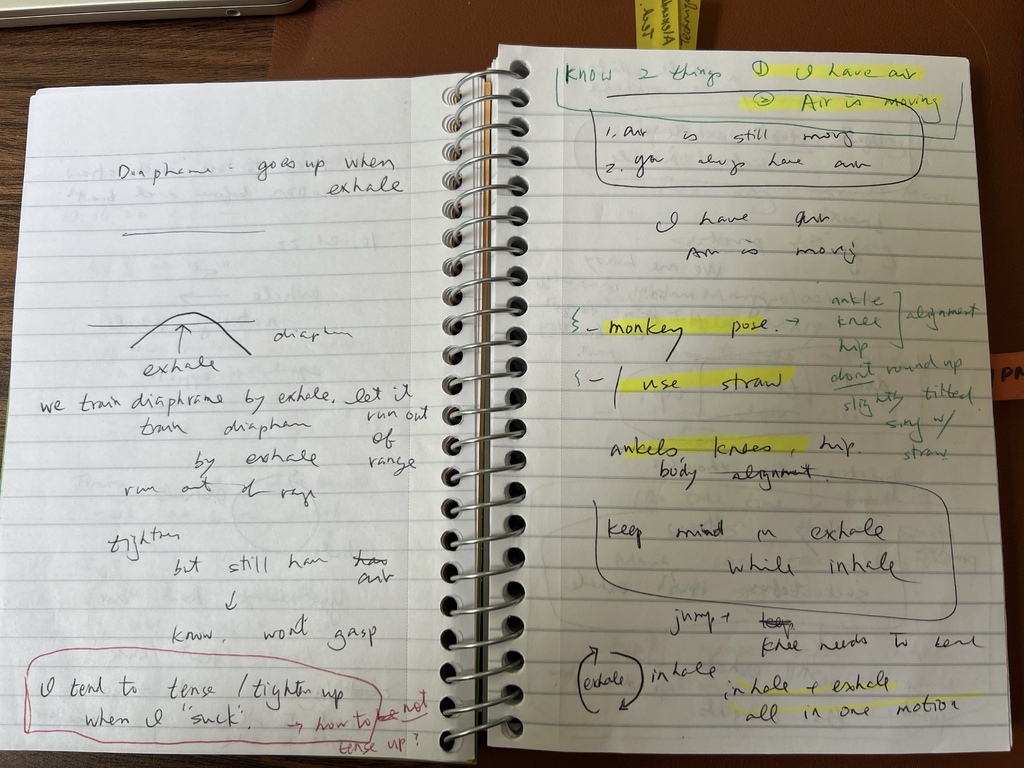 Diaphrame = goes up when
exhale
diaphm
exhale
we train diaphrame by exhale. let it
run out
of
range
train diapham
by exhale
run out of rage
tighten
but still have air
↓
know. wont gasp
I tend to tense / tighten up
when I "suck".
→ how to not
tense up?
Know 2 things ① I have air
② Air is moving
1. air is still movg
2. you always have air
I have air
Air is movig
- monkey pose. →
ankle
knee
hip
alignment
- use straw
dont round up
slightly tilted
sing w/
straw
ankels, knees, hip.
body alignment.
keep mind in exhale
while inhale
jump +
knee needs to bend
exhale
inhale
inhale + exhale
all in one motion
Alexander